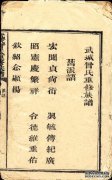 武威曾氏重修族譜
馬派語
宏聞貞尚衍 興毓傳紀廣
昭憲慶繁祥 令德維重佑
欽紹念顯揚